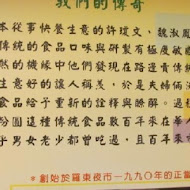 我們的傳奇
本從事快餐生意的許璞文、魏淑鳳
傳統的食品口味與研製有極
的機緣中他們發現在路邊賣傳統
生意好的讓人稱羨，於是夫婦
食品給予重新的詮釋
粉圓這種傳統食品數百年來在華
乎男女老少都曾吃過，且百年來
＊創始於羅東夜市一九九〇年的正當